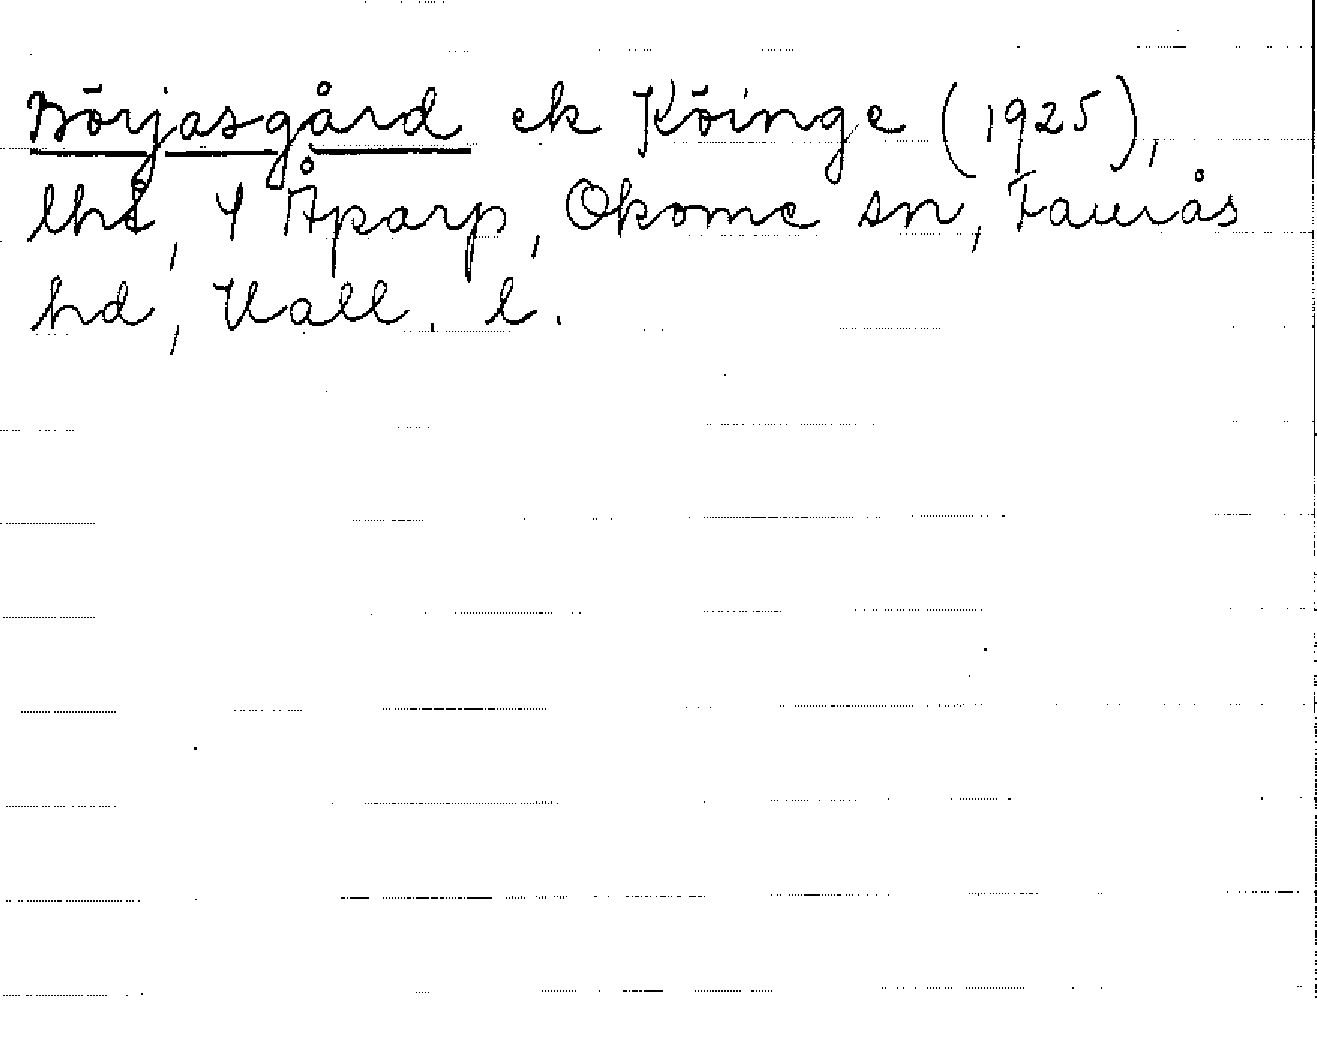 Börjasgård ek Köinge (1925),
lht, 4 Åparp, Okome sn, Faurås
hd, Hall. l.